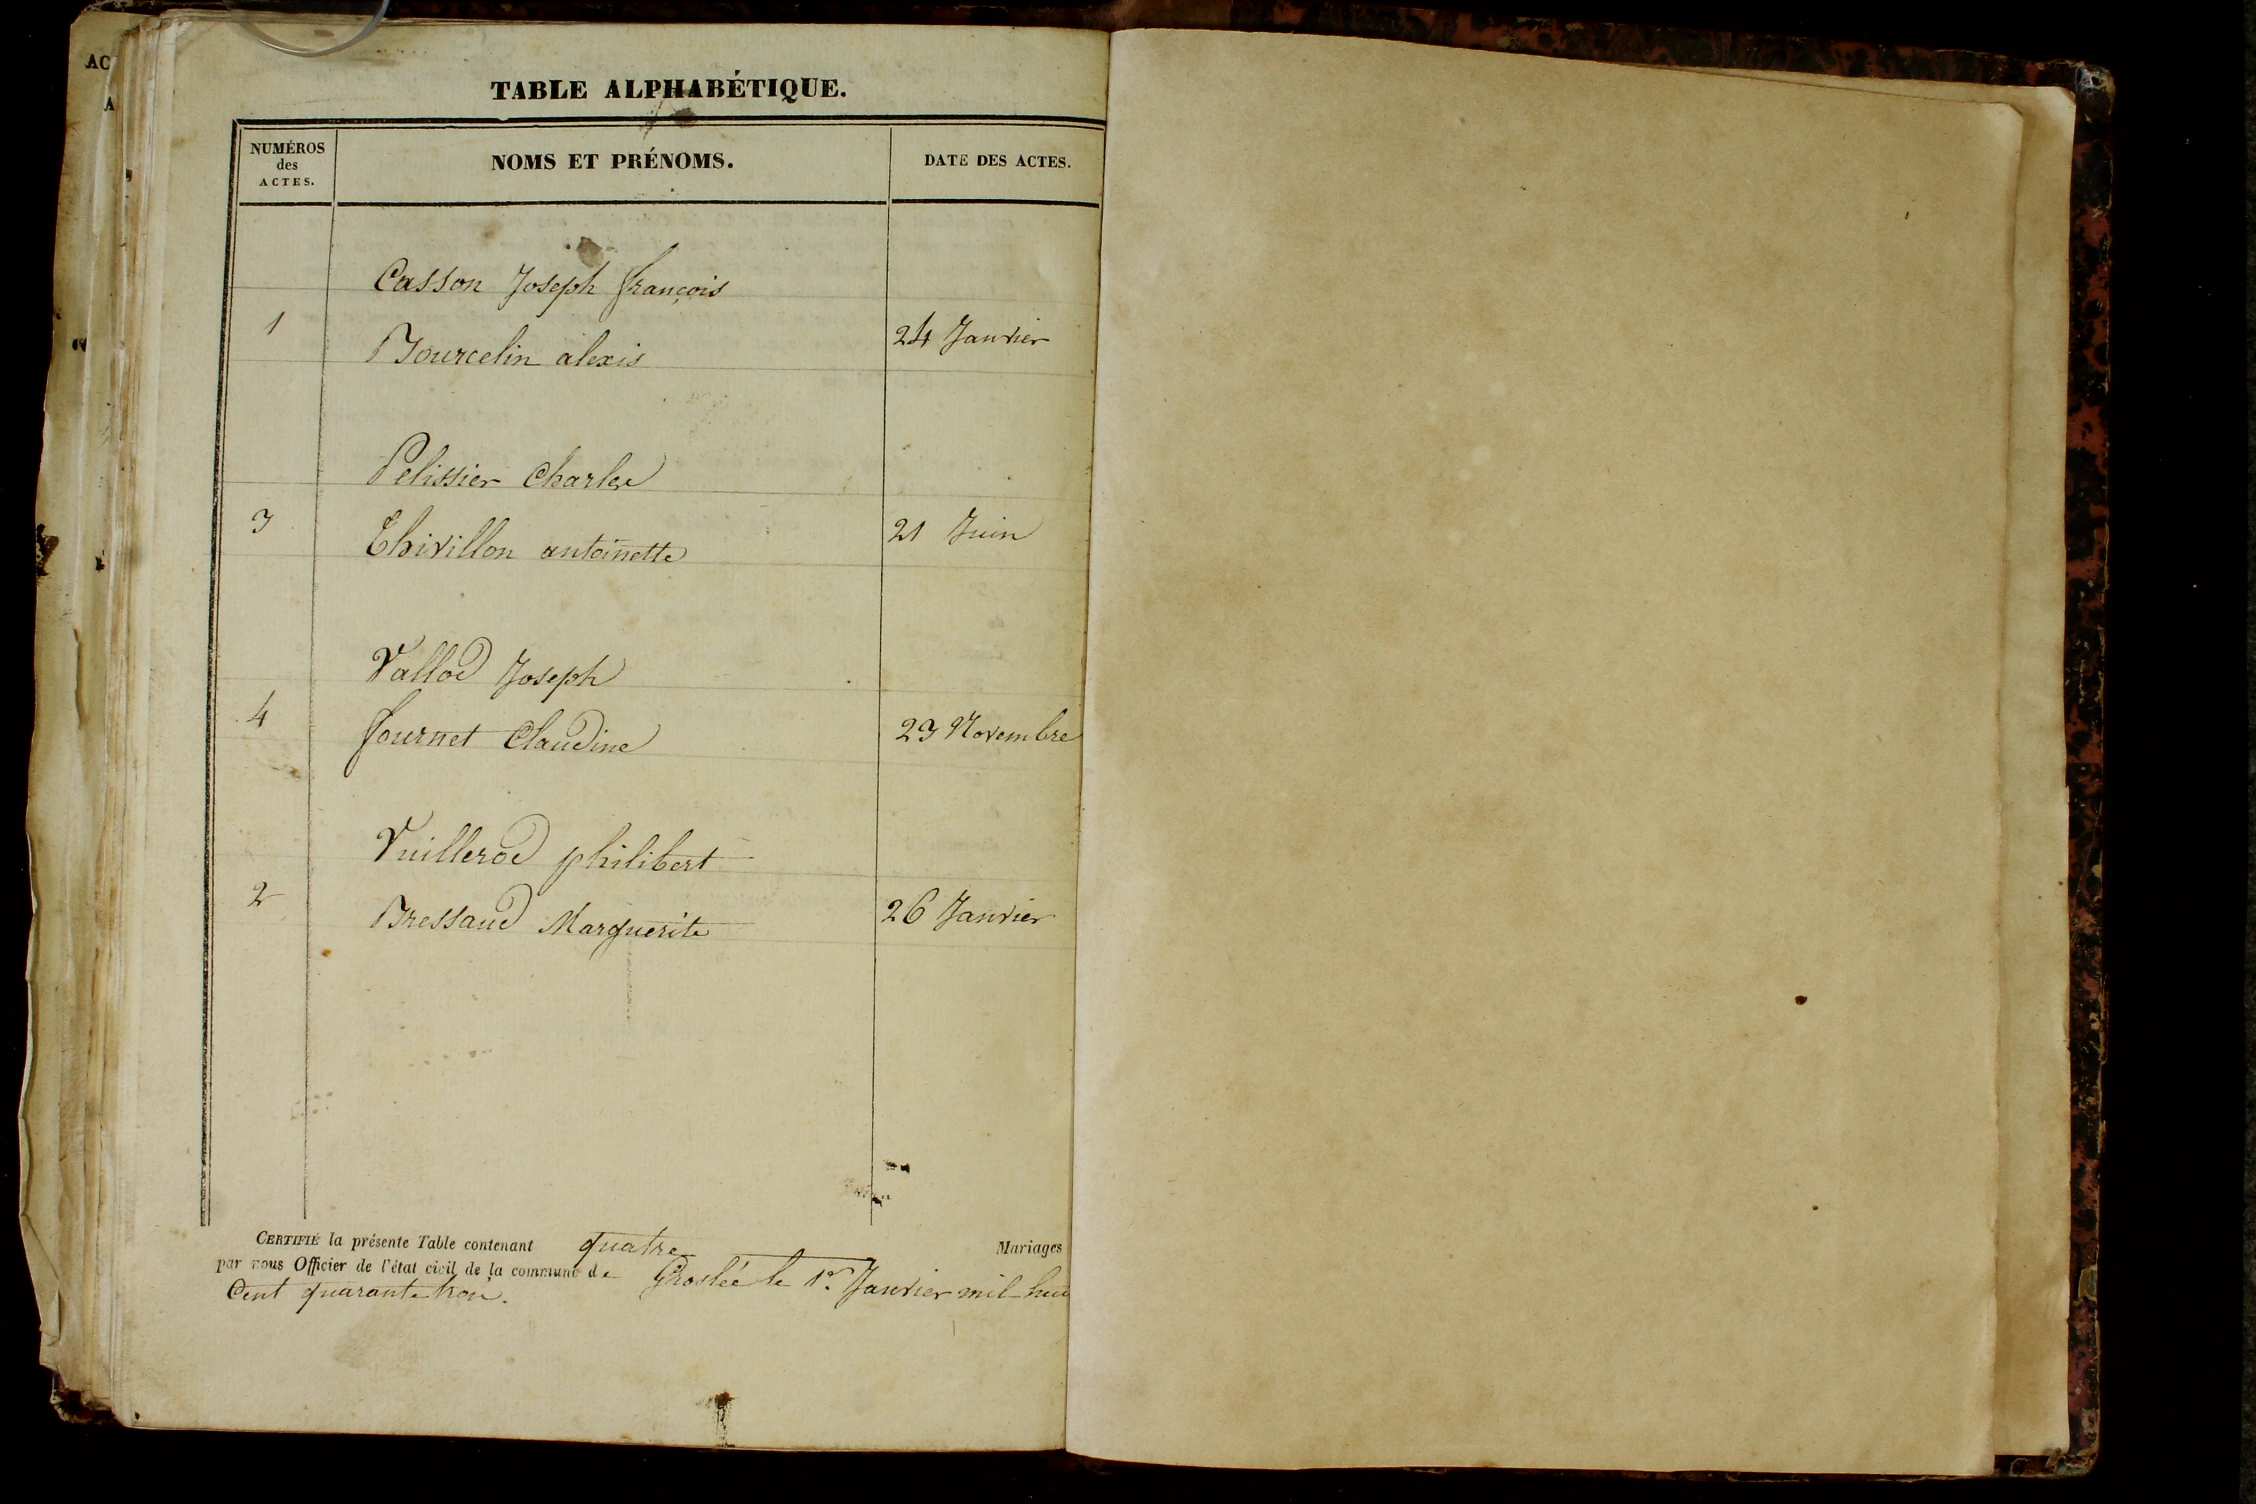 AC
A
TABLE ALPHABÉTIQUE.
NUMÉROS des ACTES. NOMS ET PRÉNOMS. DATE DES ACTES.
Casson Joseph françois
1 Bourcelin alexis 24 Janvier
Pelissier Charles
3 Thivillon antoinette 21 Juin
Vallod Joseph
4 fournet Claudine 23 Novembre
Vuillerod philibert
2 Bressaud Marguerite 26 Janvier
CERTIFIÉ la présente Table contenant quatre Mariages
par nous Officier de l'état civil de la commune de Groslée le 1er Janvier mil hui
Cent quarante trois.